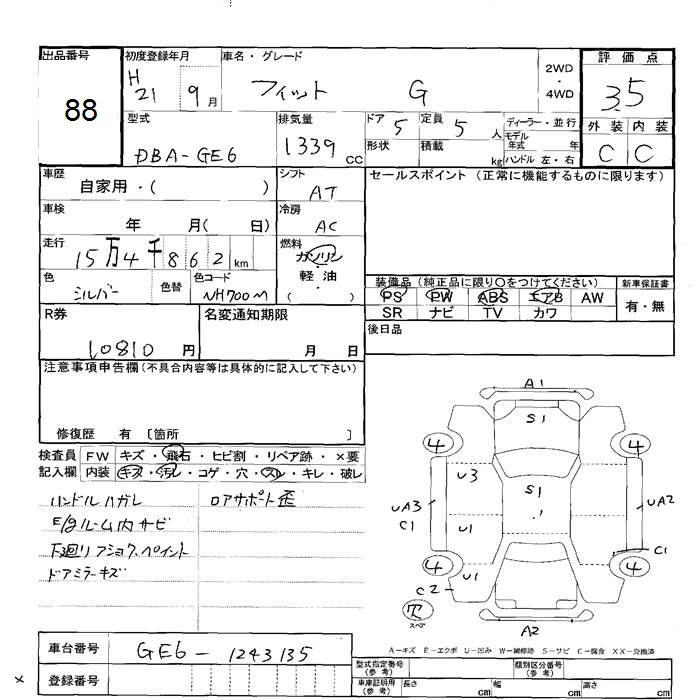 出品番号 初度登録年月 車名・グレード 2WD・4WD 評価点
88 H21 9月 フィット G 3.5
型式 排気量 ドア 5 定員 5人 ディーラー・並行 外装 内装
DBA-GE6 1339cc 形状 積載 kg モデル年式 年 ハンドル 左・右 C C
車歴 シフト セールスポイント(正常に機能するものに限ります)
自家用・( ) AT
車検 冷房
年 月( 日) AC
走行 燃料
15万4千862km ガソリン
色 色替 色コード 軽油 装備品(純正品に限り○をつけてください) 新車保証書
シルバー NH700M ( ) PS PW ABS エアB AW 有・無
R券 名変通知期限 SR ナビ TV カワ
10810円 月 日 後日品
注意事項申告欄(不具合内容等は具体的に記入して下さい)
修復歴 有 〔箇所 〕
検査員 FW キズ・飛石・ヒビ割・リペア跡・×要
記入欄 内装 キズ・汚レ・コゲ・穴・スレ・キレ・破レ
ハンドルハガレ ロアサポート歪
E/gルーム内サビ
下廻リ
ドアミラーキズ
A1
S1
4 4
U3
S1
UA3 UA2
C1
U1
C1
4 4
U1
C2
スペア
A2
A-キズ E-エクボ U-凹み W-補修跡 S-サビ C-腐食 XX-交換済
車台番号 GE6-1243135
登録番号
型式指定番号(参考) 類別区分番号(参考)
車庫証明用(参考) 長さ cm 幅 cm 高さ cm
×